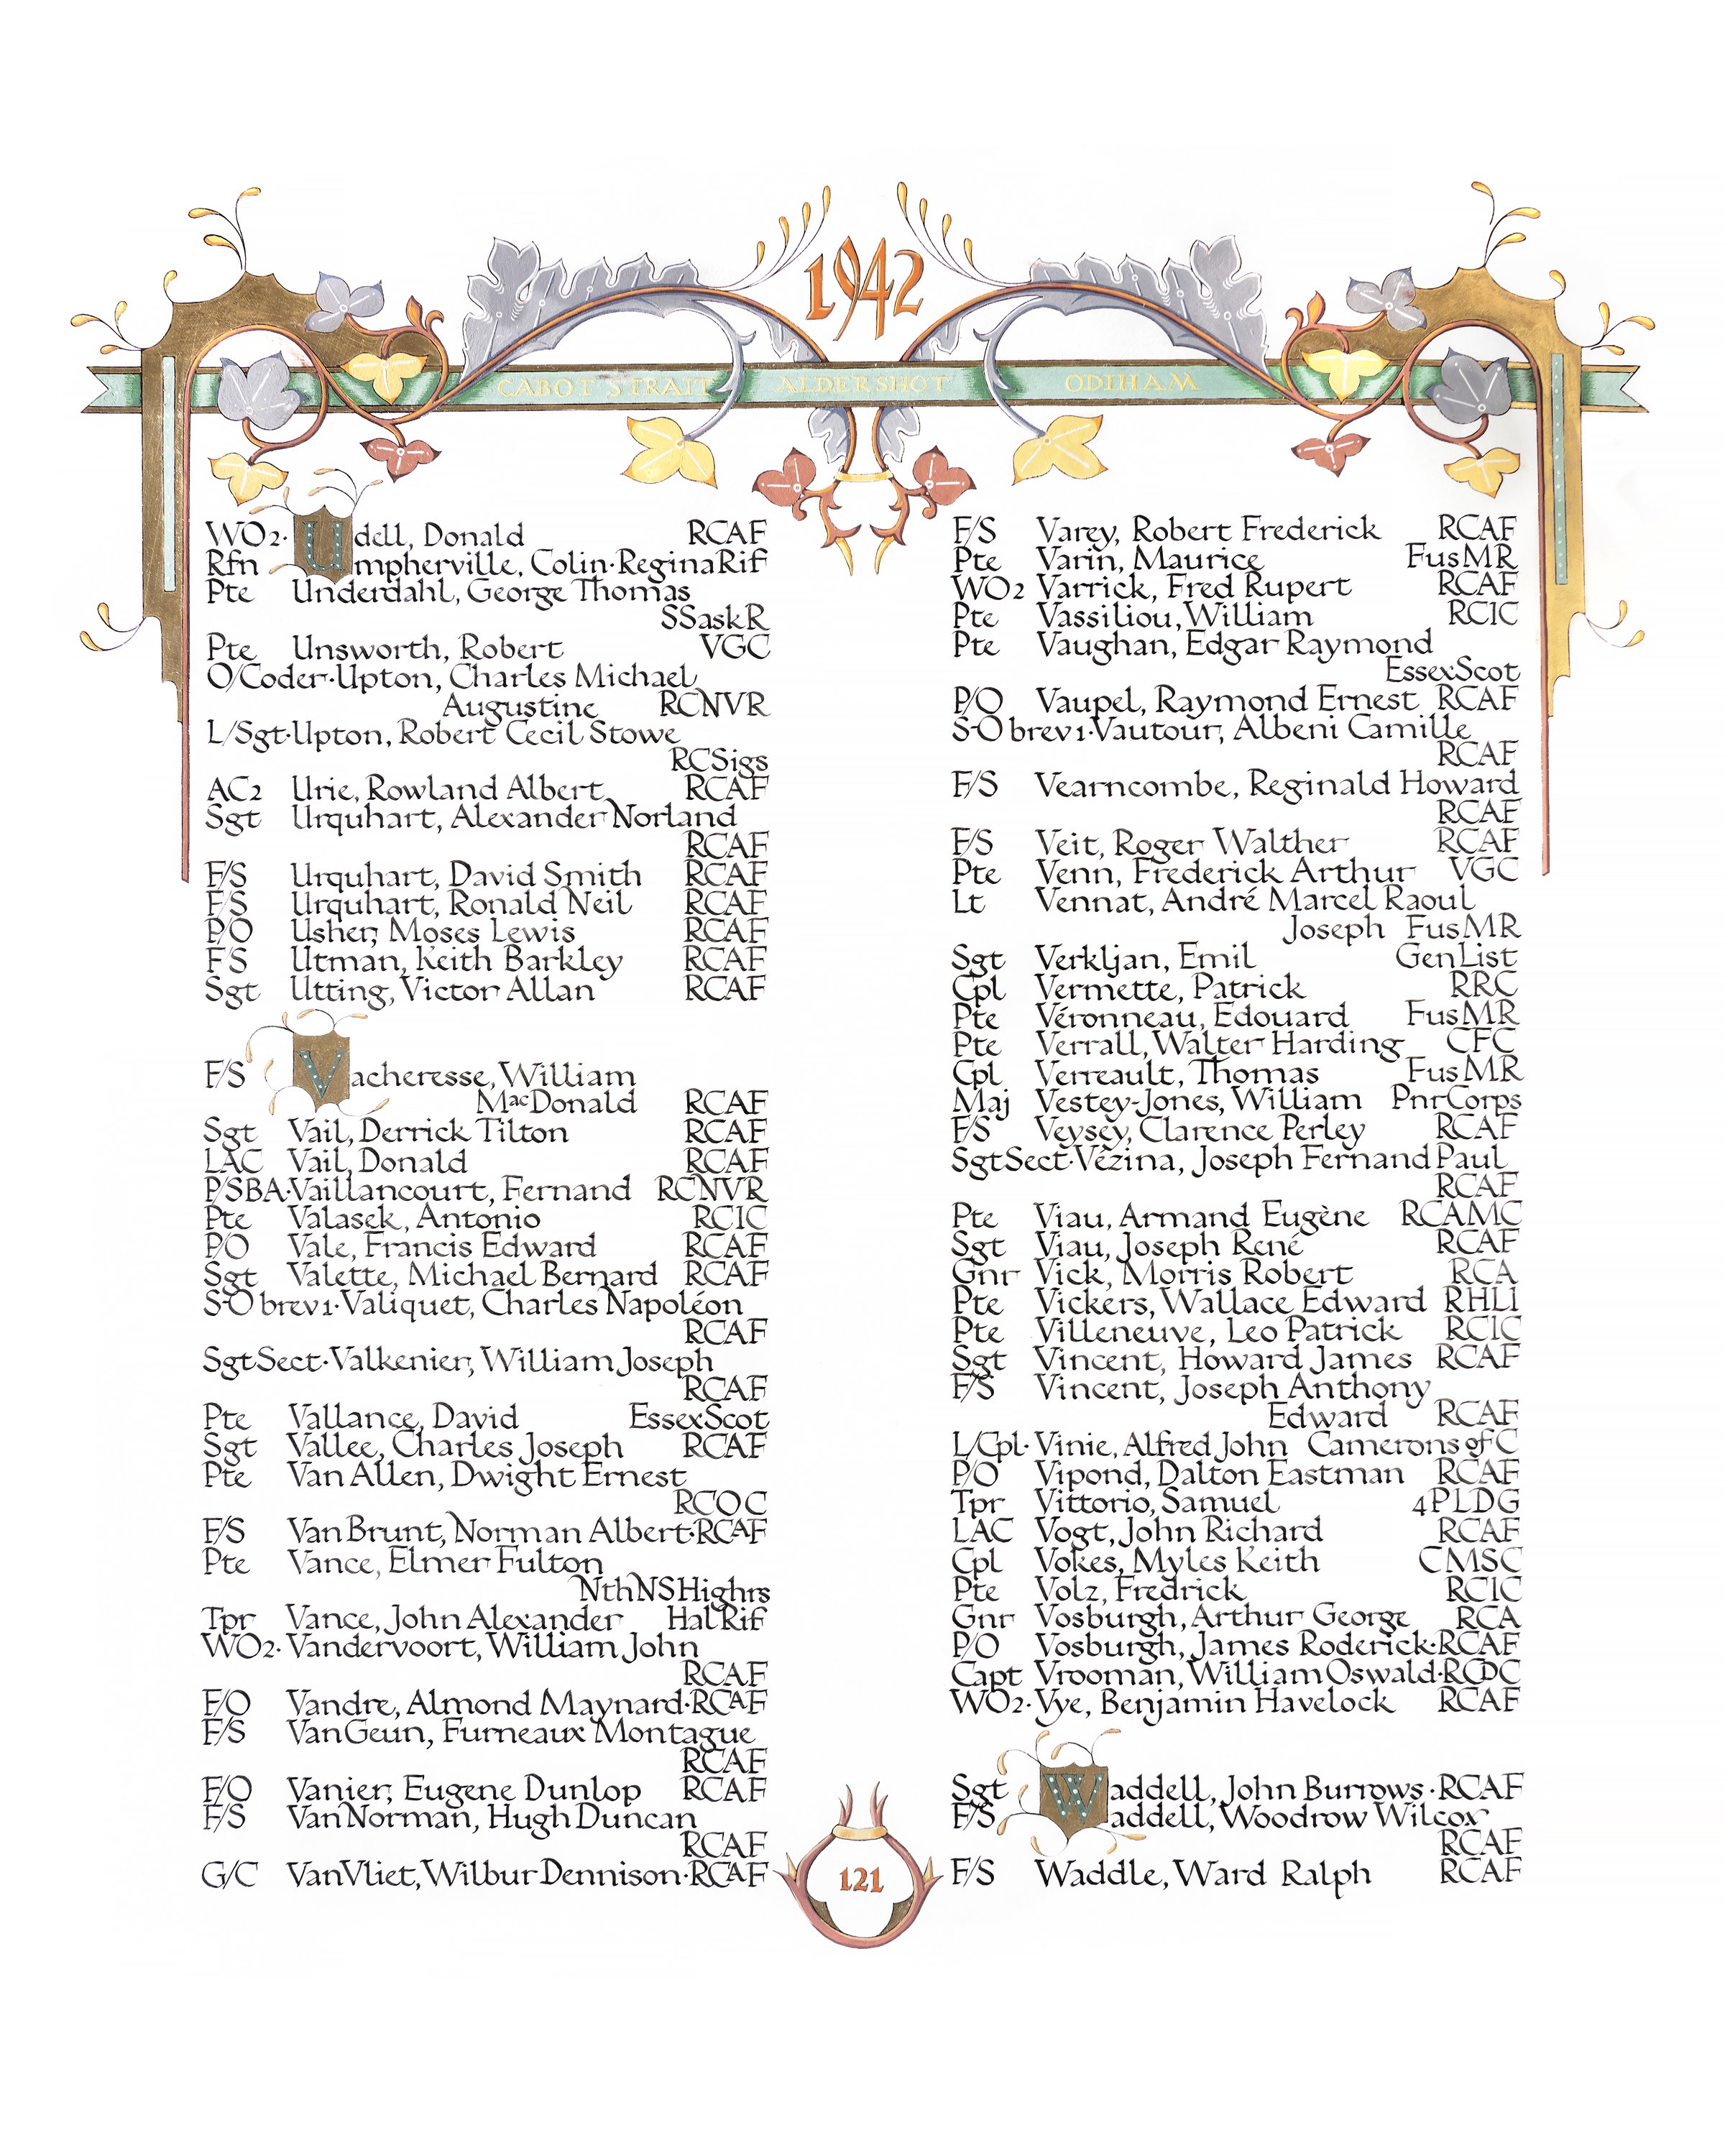 1942
CABOT STRAIT ALDERSHOT ODIHAM
WO2· Udell, Donald RCAF
Rfn Umpherville, Colin·ReginaRif
Pte Underdahl, George Thomas
SSaskR
Pte Unsworth, Robert VGC
O/Coder·Upton, Charles Michael
Augustine RCNVR
L/Sgt·Upton, Robert Cecil Stowe
RCSigs
AC2 Urie, Rowland Albert RCAF
Sgt Urquhart, Alexander Norland
RCAF
F/S Urquhart, David Smith RCAF
F/S Urquhart, Ronald Neil RCAF
P/O Usher, Moses Lewis RCAF
F/S Utman, Keith Barkley RCAF
Sgt Utting, Victor Allan RCAF
F/S Vacheresse, William
MacDonald RCAF
Sgt Vail, Derrick Tilton RCAF
LAC Vail, Donald RCAF
P/SBA·Vaillancourt, Fernand RCNVR
Pte Valasek, Antonio RCIC
P/O Vale, Francis Edward RCAF
Sgt Valette, Michael Bernard RCAF
S-O brev1·Valiquet, Charles Napoléon
RCAF
SgtSect·Valkenier, William Joseph
RCAF
Pte Vallance, David EssexScot
Sgt Vallee, Charles Joseph RCAF
Pte Van Allen, Dwight Ernest
RCOC
F/S VanBrunt, Norman Albert·RCAF
Pte Vance, Elmer Fulton
NthNSHighrs
Tpr Vance, John Alexander HalRif
WO2· Vandervoort, William John
RCAF
F/O Vandre, Almond Maynard·RCAF
F/S VanGeun, Furneaux Montague
RCAF
F/O Vanier, Eugene Dunlop RCAF
F/S VanNorman, Hugh Duncan
RCAF
G/C VanVliet, Wilbur Dennison·RCAF
F/S Varey, Robert Frederick RCAF
Pte Varin, Maurice FusMR
WO2 Varrick, Fred Rupert RCAF
Pte Vassiliou, William RCIC
Pte Vaughan, Edgar Raymond
EssexScot
P/O Vaupel, Raymond Ernest RCAF
S-O brev1·Vautour, Albeni Camille
RCAF
F/S Vearncombe, Reginald Howard
RCAF
F/S Veit, Roger Walther RCAF
Pte Venn, Frederick Arthur VGC
Lt Vennat, André Marcel Raoul
Joseph FusMR
Sgt Verkljan, Emil GenList
Cpl Vermette, Patrick RRC
Pte Véronneau, Edouard FusMR
Pte Verrall, Walter Harding CFC
Cpl Verreault, Thomas FusMR
Maj Vestey-Jones, William PnrCorps
F/S Veysey, Clarence Perley RCAF
SgtSect·Vézina, Joseph Fernand Paul
RCAF
Pte Viau, Armand Eugène RCAMC
Sgt Viau, Joseph René RCAF
Gnr Vick, Morris Robert RCA
Pte Vickers, Wallace Edward RHLI
Pte Villeneuve, Leo Patrick RCIC
Sgt Vincent, Howard James RCAF
F/S Vincent, Joseph Anthony
Edward RCAF
L/Cpl· Vinie, Alfred John Camerons of C
P/O Vipond, Dalton Eastman RCAF
Tpr Vittorio, Samuel 4PLDG
LAC Vogt, John Richard RCAF
Cpl Vokes, Myles Keith CMSC
Pte Volz, Fredrick RCIC
Gnr Vosburgh, Arthur George RCA
P/O Vosburgh, James Roderick·RCAF
Capt Vrooman, William Oswald·RCDC
WO2· Vye, Benjamin Havelock RCAF
Sgt Waddell, John Burrows·RCAF
F/S Waddell, Woodrow Wilcox
RCAF
F/S Waddle, Ward Ralph RCAF
121